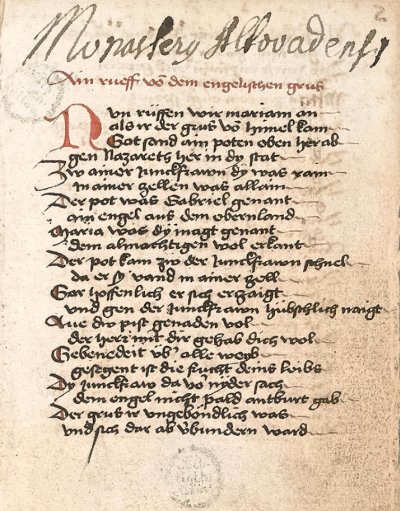 Monastery Altovadensis
2
Ain rueff vo dem engelischen grus
Nvn rüffen wir mariam an
als ir der grus vo himel kam
Got sand ain poten oben herab
gen Nazareth her in dy stat
Zw ainer Junckfrawn dy was
in ainer zellen was allain
Der pot was Gabriel genant
ain engel aus dem obernland
Maria was dy magt genant
dem almachtigen wol erkant
Der pot kam zw der Junckfrawn schnel
da er sy vand in ainer zell
Gar hoffenlich er sich erzaigt
vnd gen der Junckfrawn hübschlich naigt
Aue dw pist genaden vol
der herz mit dir gehab dich wol
Gebenedeit vb' alle weyb
gesegent ist die frucht deins leibs
Dy Junckfraw da vo nyder sach
dem engel nicht pald antburt gab
Der grus ir vngebondlich was
vnd sich dar ab v̈bundern ward